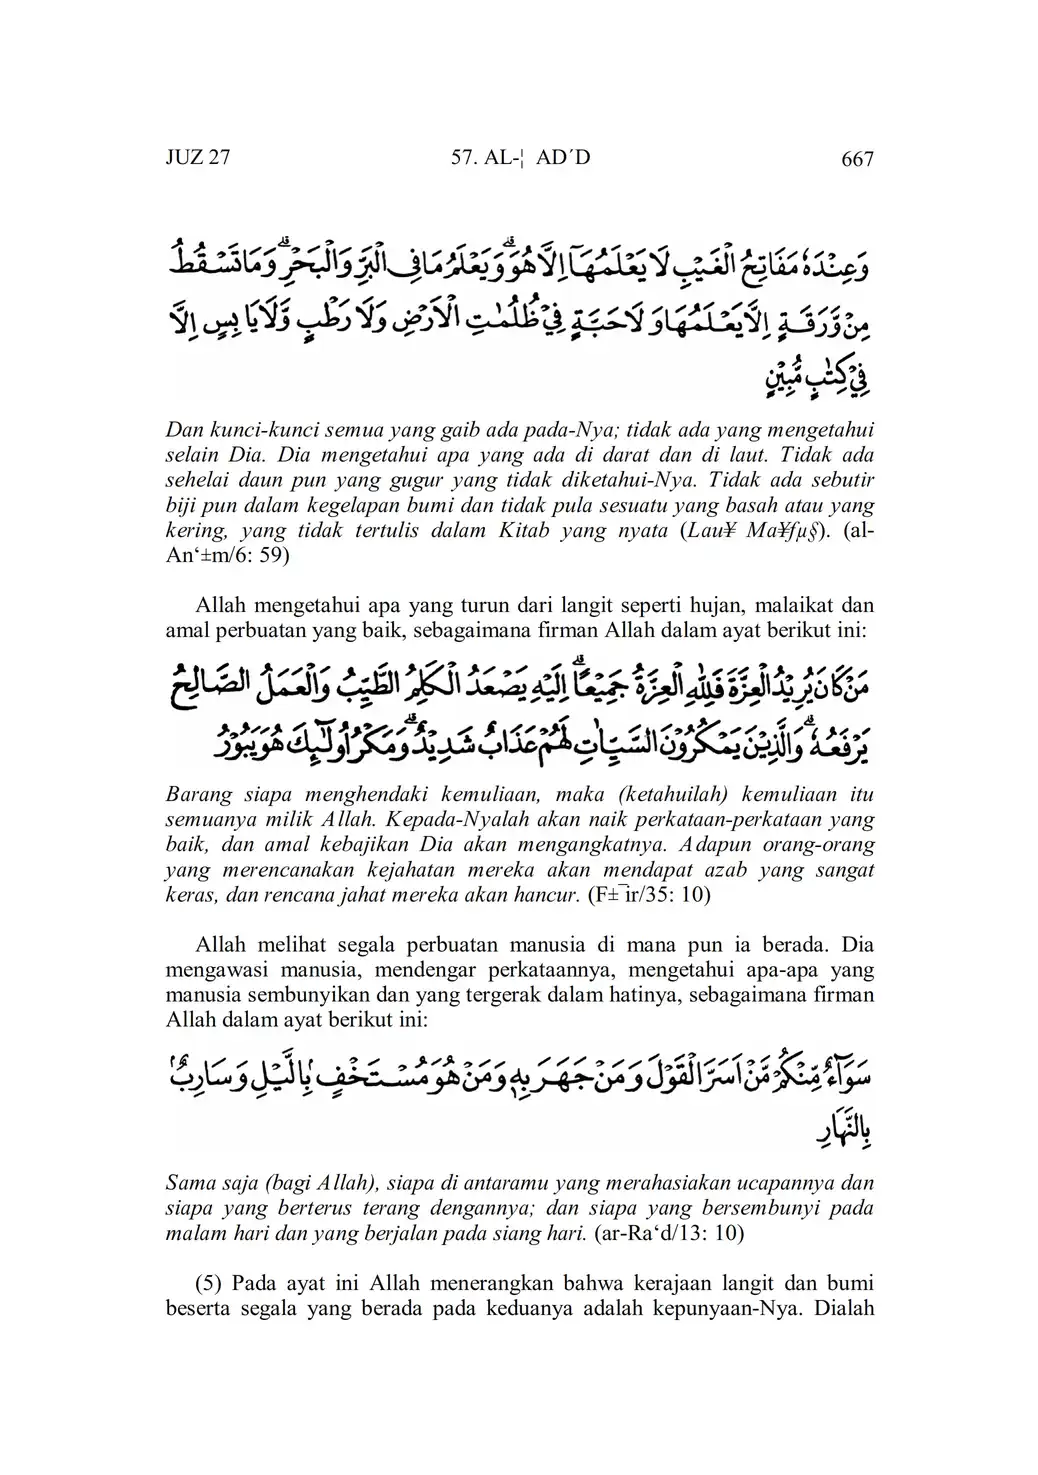 JUZ 27 57. AL-¦ AD´D 667
وَعِنْدَهٗ مَفَاتِحُ الْغَيْبِ لَا يَعْلَمُهَآ اِلَّا هُوَۗ وَيَعْلَمُ مَا فِى الْبَرِّ وَالْبَحْرِۗ وَمَا تَسْقُطُ
مِنْ وَّرَقَةٍ اِلَّا يَعْلَمُهَا وَلَا حَبَّةٍ فِيْ ظُلُمٰتِ الْاَرْضِ وَلَا رَطْبٍ وَّلَا يَابِسٍ اِلَّا
فِيْ كِتٰبٍ مُّبِيْنٍ
Dan kunci-kunci semua yang gaib ada pada-Nya; tidak ada yang mengetahui
selain Dia. Dia mengetahui apa yang ada di darat dan di laut. Tidak ada
sehelai daun pun yang gugur yang tidak diketahui-Nya. Tidak ada sebutir
biji pun dalam kegelapan bumi dan tidak pula sesuatu yang basah atau yang
kering, yang tidak tertulis dalam Kitab yang nyata (Lau¥ Ma¥fµ§). (al-
An‘±m/6: 59)
Allah mengetahui apa yang turun dari langit seperti hujan, malaikat dan
amal perbuatan yang baik, sebagaimana firman Allah dalam ayat berikut ini:
مَنْ كَانَ يُرِيْدُ الْعِزَّةَ فَلِلّٰهِ الْعِزَّةُ جَمِيْعًاۗ اِلَيْهِ يَصْعَدُ الْكَلِمُ الطَّيِّبُ وَالْعَمَلُ الصَّالِحُ
يَرْفَعُهٗۗ وَالَّذِيْنَ يَمْكُرُوْنَ السَّيِّاٰتِ لَهُمْ عَذَابٌ شَدِيْدٌۗ وَمَكْرُ اُولٰۤىِٕكَ هُوَ يَبُوْرُ
Barang siapa menghendaki kemuliaan, maka (ketahuilah) kemuliaan itu
semuanya milik Allah. Kepada-Nyalah akan naik perkataan-perkataan yang
baik, dan amal kebajikan Dia akan mengangkatnya. Adapun orang-orang
yang merencanakan kejahatan mereka akan mendapat azab yang sangat
keras, dan rencana jahat mereka akan hancur. (F±¯ir/35: 10)
Allah melihat segala perbuatan manusia di mana pun ia berada. Dia
mengawasi manusia, mendengar perkataannya, mengetahui apa-apa yang
manusia sembunyikan dan yang tergerak dalam hatinya, sebagaimana firman
Allah dalam ayat berikut ini:
سَوَاۤءٌ مِّنْكُمْ مَّنْ اَسَرَّ الْقَوْلَ وَمَنْ جَهَرَ بِهٖ وَمَنْ هُوَ مُسْتَخْفٍۢ بِالَّيْلِ وَسَارِبٌۢ
بِالنَّهَارِ
Sama saja (bagi Allah), siapa di antaramu yang merahasiakan ucapannya dan
siapa yang berterus terang dengannya; dan siapa yang bersembunyi pada
malam hari dan yang berjalan pada siang hari. (ar-Ra‘d/13: 10)
(5) Pada ayat ini Allah menerangkan bahwa kerajaan langit dan bumi
beserta segala yang berada pada keduanya adalah kepunyaan-Nya. Dialah